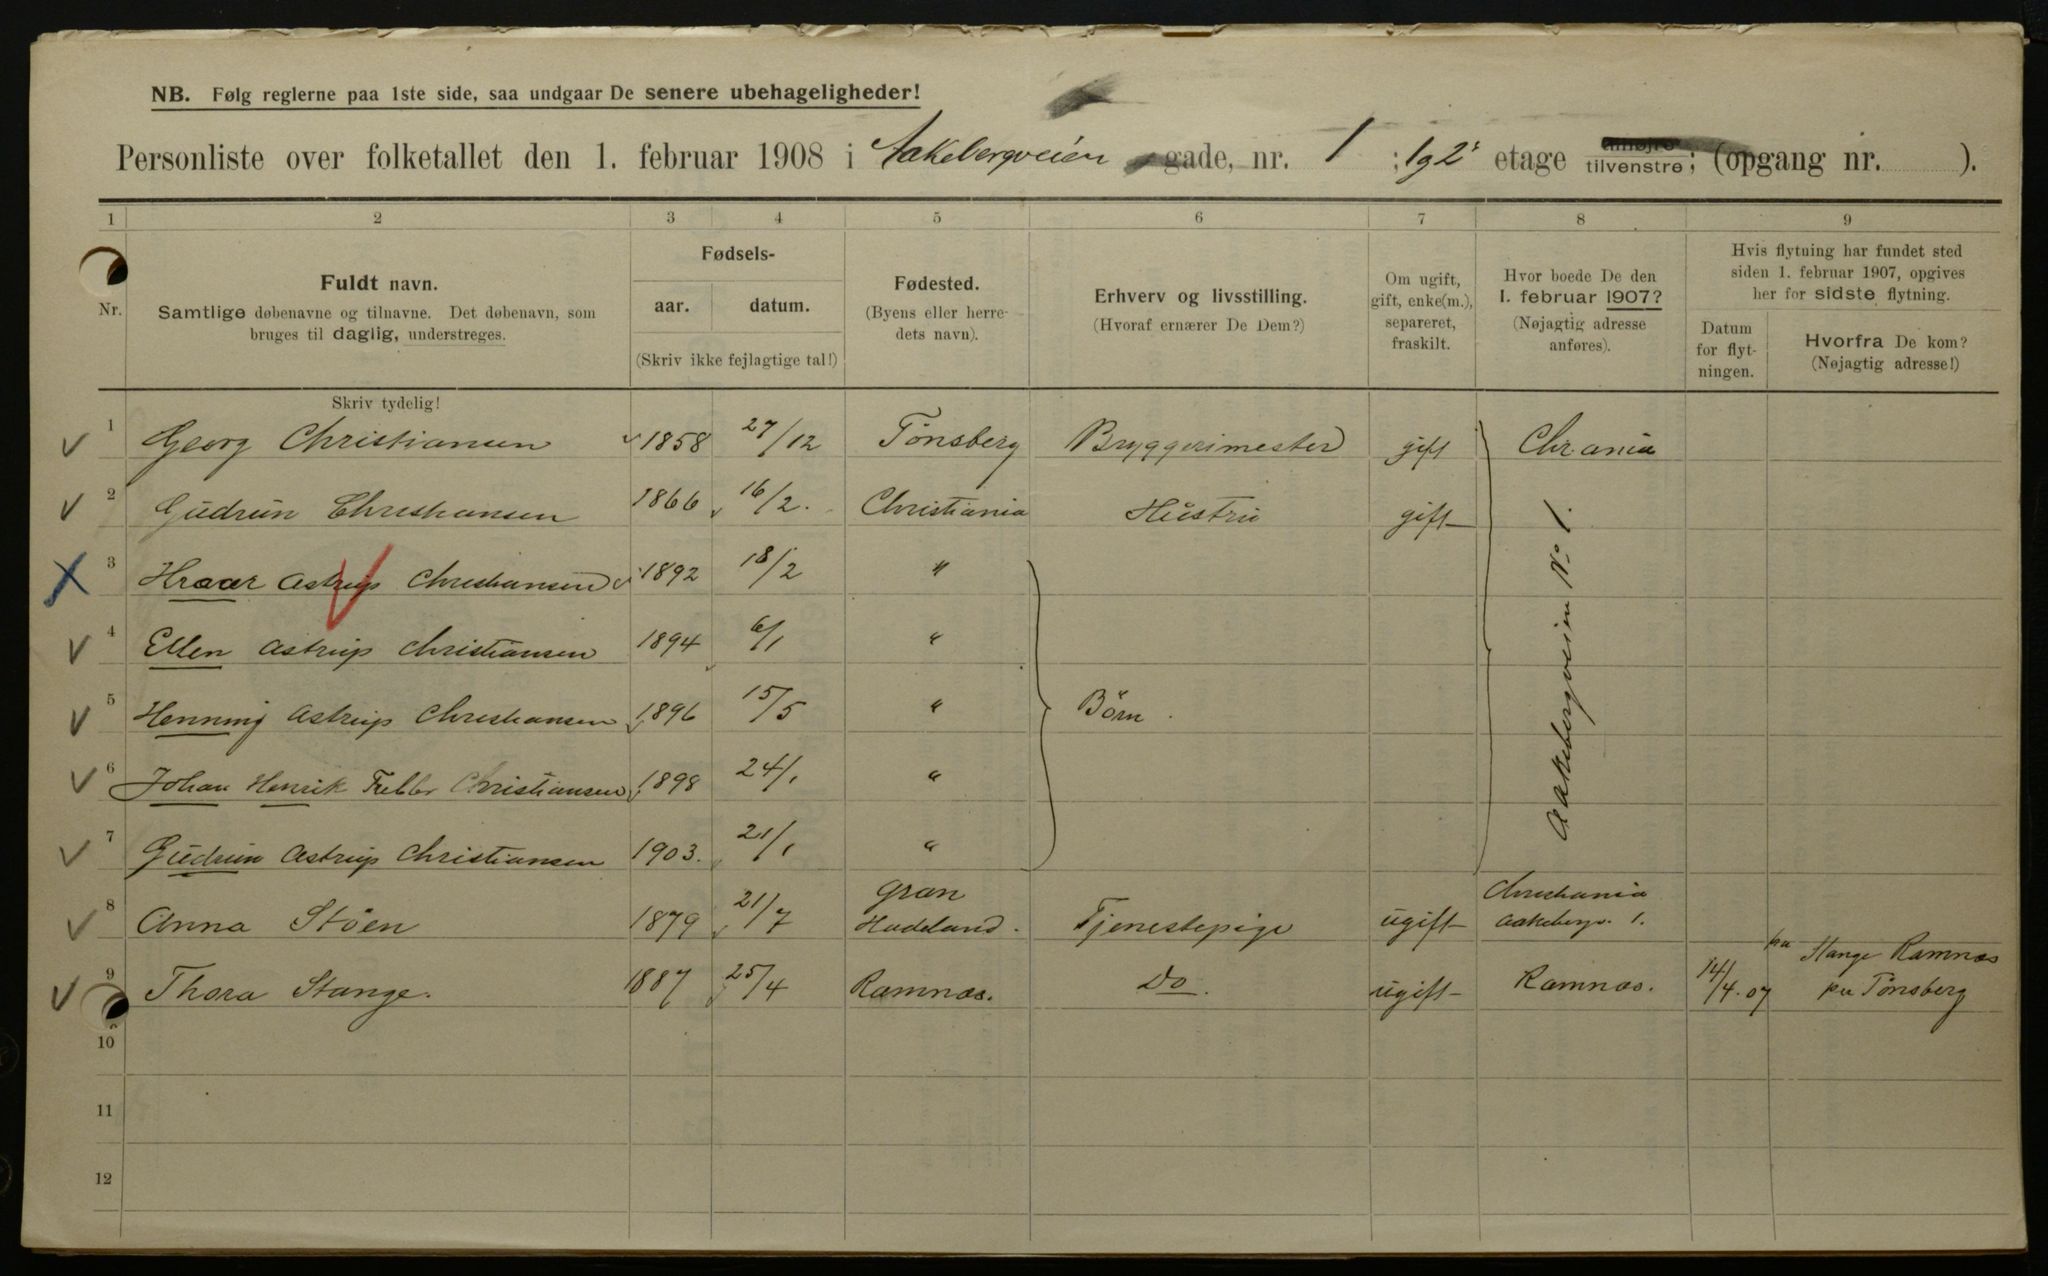 NB. Følg reglerne paa 1ste side, saa undgaar De senere ubehageligheder!
Personliste over folketallet den 1. februar 1908 i Aakebergveien gade, nr. 1 ; 1 og 2' etage tilhøjre tilvenstre; (opgang nr. ).
1 2 3 4 5 6 7 8 9
Nr.
Fuldt navn.
Samtlige døbenavne og tilnavne. Det døbenavn, som
bruges til daglig, understreges.
Fødsels-
aar. datum.
(Skriv ikke fejlagtige tal!)
Fødested.
(Byens eller herre-
dets navn).
Erhverv og livsstilling.
(Hvoraf ernærer De Dem?)
Om ugift,
gift, enke(m.),
separeret,
fraskilt.
Hvor boede De den
1. februar 1907?
(Nøjagtig adresse
anføres).
Hvis flytning har fundet sted
siden 1. februar 1907, opgives
her for sidste flytning.
Datum
for flyt-
ningen.
Hvorfra De kom?
(Nøjagtig adresse!)
Skriv tydelig!
1 Georg Christiansen 1858 27/12 Tönsberg Bryggerimester gift Chr.ania
2 Gudrun Christiansen 1866 16/2. Christiania Hustru gift
Aakebergveien No 1.
3 Hroar Astrup Christiansen 1892 18/2 "
4 Ellen Astrup Christiansen 1894 6/1 "
5 Henning Astrup Christiansen 1896 15/5 " Börn.
6 Johan Henrik Christiansen 1898 24/1 "
7 Gudrun Astrup Christiansen 1903. 21/1 "
8 Anna Stöen 1879 21/7 Gran Hadeland. Tjenestepige ugift Christiania Aakebergv. 1.
9 Thora Stange. 1887 25/4 Ramnæs. Do. ugift Ramnæs. 14/4.07 pr Stange Ramnæs
pr Tönsberg
10
11
12